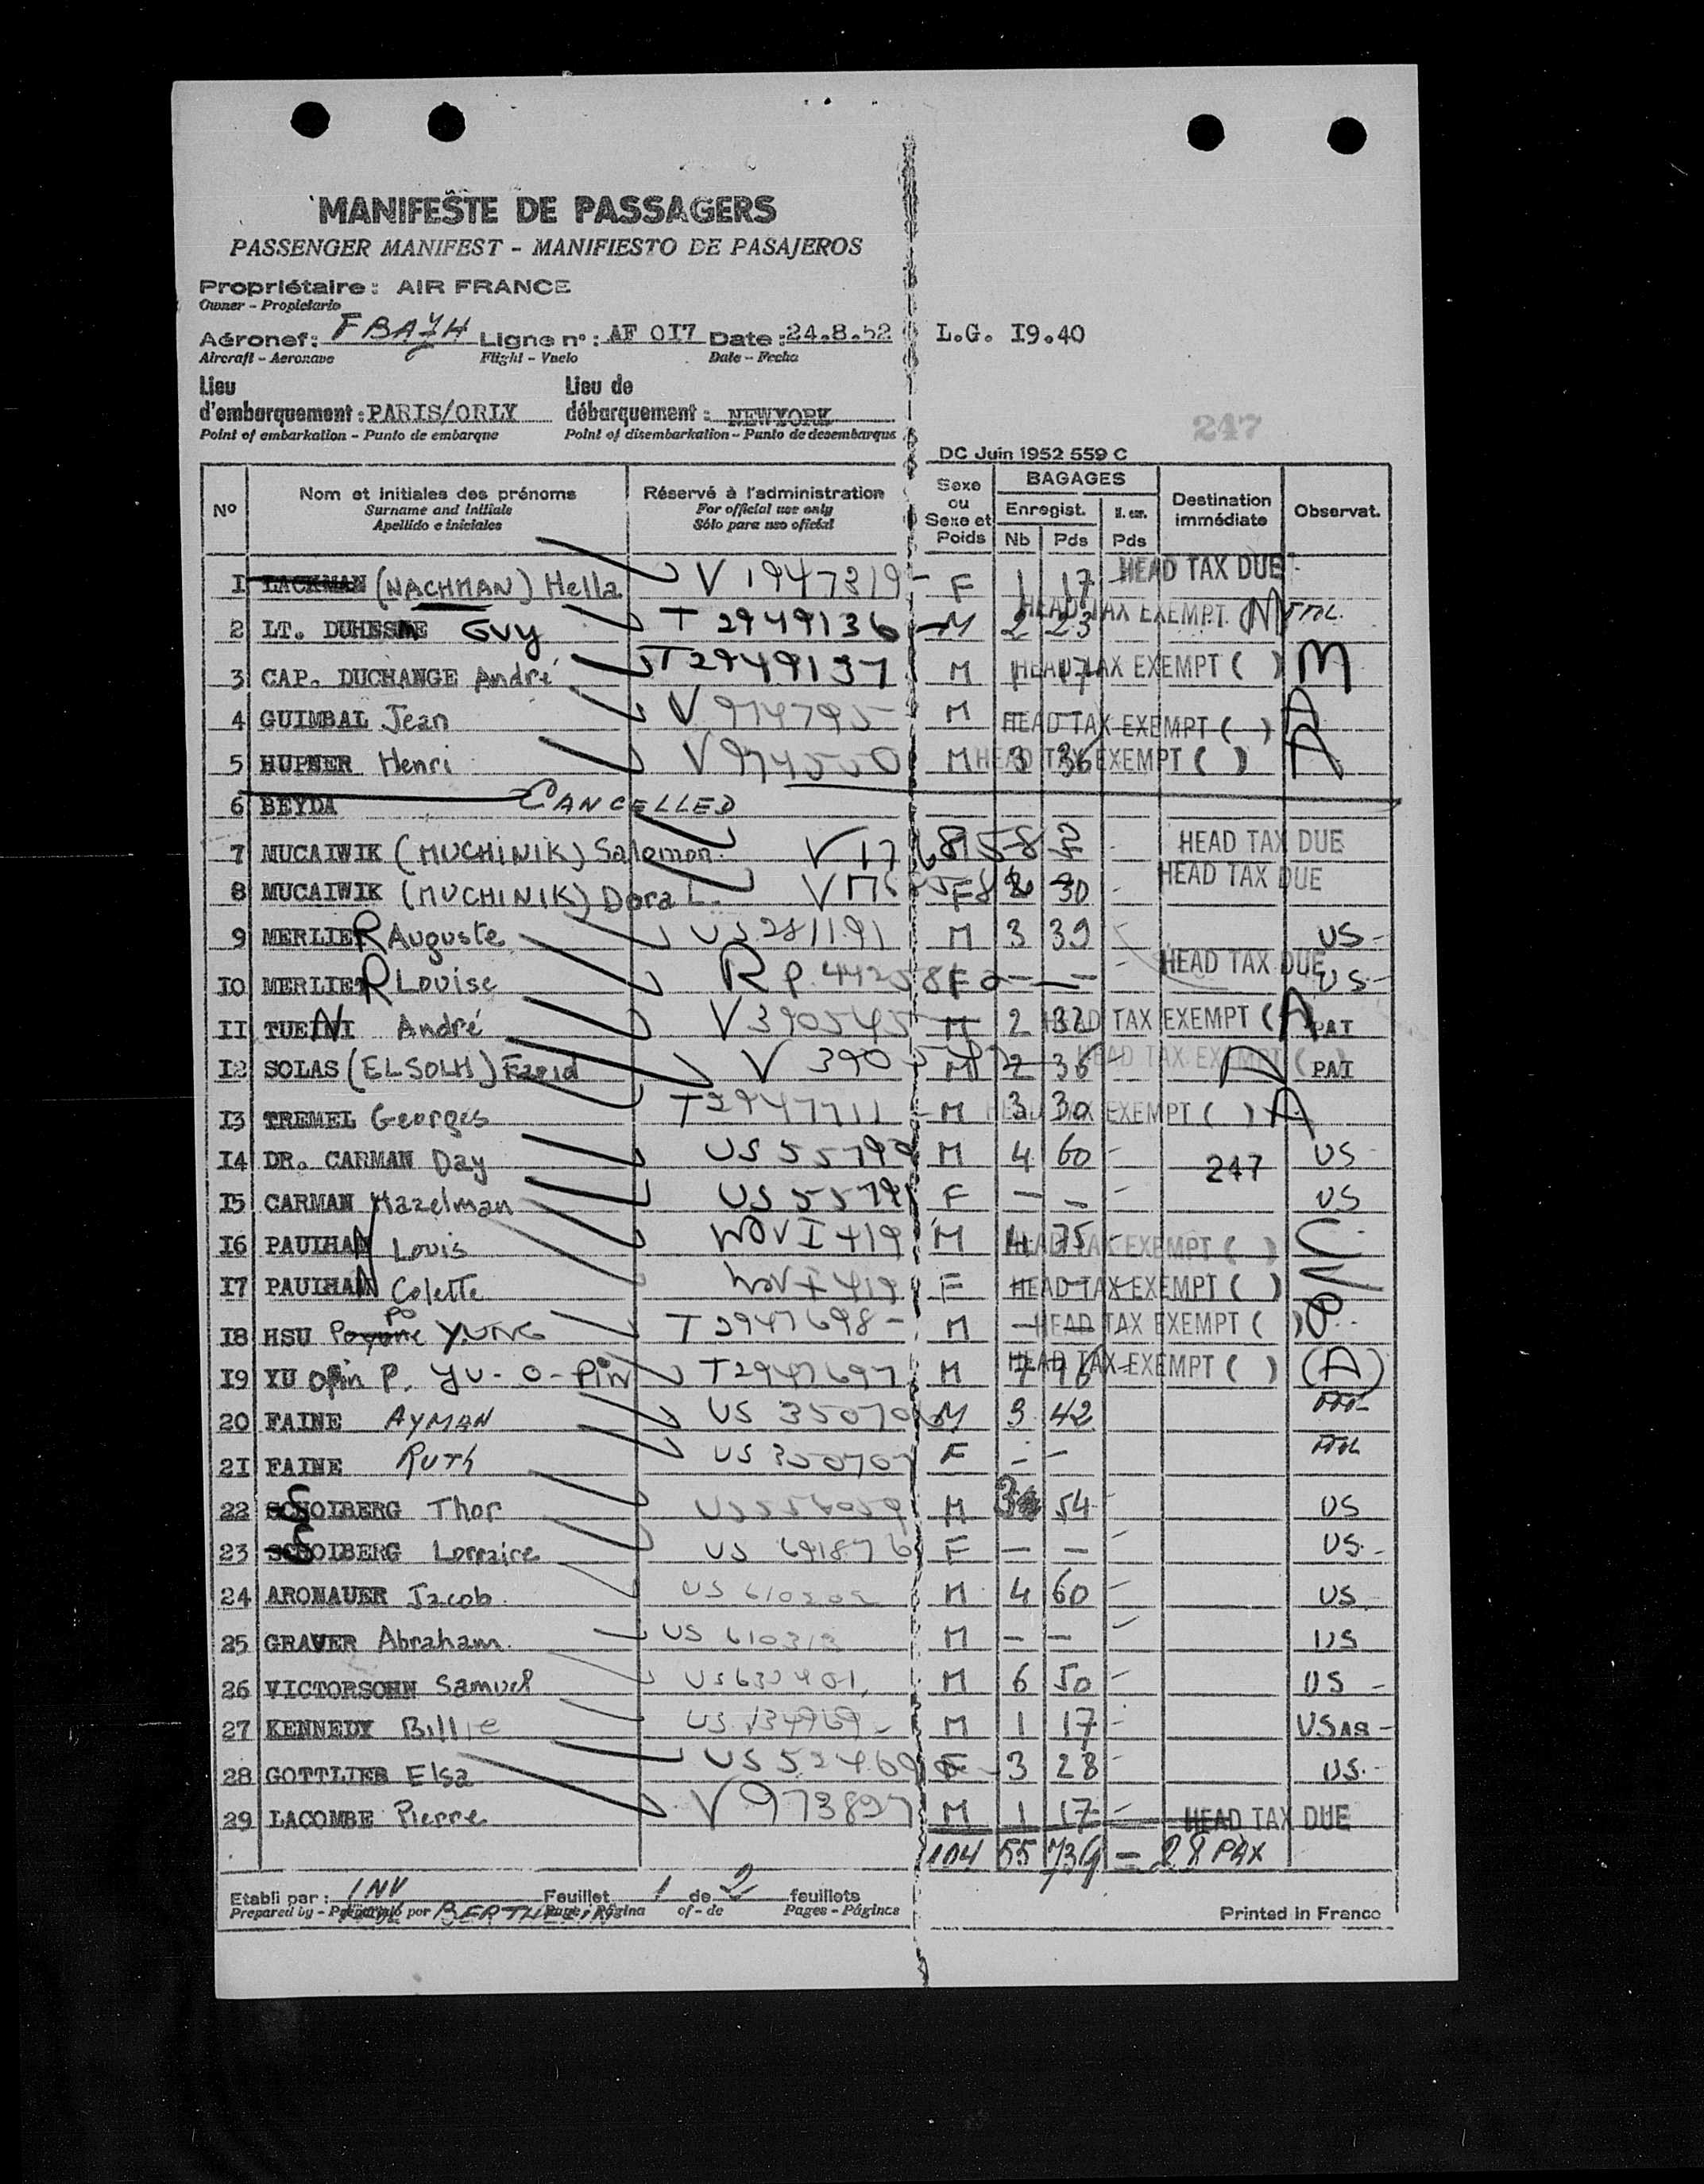 MANIFESTE DE PASSAGERS
PASSENGER MANIFEST - MANIFIESTO DE PASAJEROS
Propriétaire : AIR FRANCE
Owner - Propietario
Aéronef : FBAYH Ligne n° : AF 017 Date : 24.8.52 L.G. I9.40
Aircraft - Aeronave Flight - Vuelo Date - Fecha
Lieu d'embarquement : PARIS/ORLY Lieu de débarquement : NEWYORK
Point of embarkation - Punto de embarque Point of disembarkation - Punto de desembarque
247
DC Juin 1952 559 C
N° Nom et initiales des prénoms Réservé à l'administration Sexe ou Sexe et Poids BAGAGES Destination immédiate Observat.
Surname and initials For official use only Enregist. N. enr.
Apellido e iniciales Sólo para uso oficial Nb Pds Pds
I LACKMAN (NACHMAN) Hella V 1947319 F 1 17 HEAD TAX DUE
2 LT. DUHESME Guy T 2949136 M 2 23 HEAD TAX EXEMPT (M)
3 CAP. DUCHANGE André T2949137 M 1 17 HEAD TAX EXEMPT ( ) M
4 GUIMBAL Jean V 974795 M HEAD TAX EXEMPT ( ) A
5 HUPNER Henri V 974550 M 3 36 HEAD TAX EXEMPT ( ) A
6 BEYDA CANCELLED
7 MUCAIWIK (MUCHINIK) Salomon HEAD TAX DUE
8 MUCAIWIK (MUCHINIK) Dora L. F 30 HEAD TAX DUE
9 MERLIER Auguste US 281191 M 3 39 US
IO MERLIER Louise RP F - - HEAD TAX DUE US
II TUENI André V390545 M 2 32 HEAD TAX EXEMPT (A PAI
I2 SOLAS (ELSOLH) Farid V 390 M 2 36 HEAD TAX EXEMPT ( ) A PAI
I3 TREMEL Georges T2947711 M 3 30 HEAD TAX EXEMPT ( ) A
I4 DR. CARMAN Day US 55799 M 4 60 - 247 US
I5 CARMAN Hazelman US 55791 F - - - US
I6 PAULHAN Louis M 4 75 HEAD TAX EXEMPT ( )
I7 PAULHAN Colette F - HEAD TAX EXEMPT ( )
I8 HSU Po YUNG T 2947698 M - HEAD TAX EXEMPT ( )
I9 YU Opin P. YU-O-Pin T2947697 M HEAD TAX EXEMPT ( ) (A)
20 FAINE AYMAN US 35070 M 3 42
2I FAINE Ruth US 350707 F - -
22 SOLBERG Thor US 556059 M 3 54 US
23 SOLBERG Lorraine US 691876 F - - - US
24 ARONAUER Jacob US M 4 60 - US
25 GRAVER Abraham US M - - - US
26 VICTORSOHN Samuel US M 6 50 - US
27 KENNEDY Billie US M 1 17 - USAS
28 GOTTLIEB Elsa US F 3 28 - US
29 LACOMBE Pierre V 973897 M 1 17 - HEAD TAX DUE
104 55 739 = 28 PAX
Etabli par : INV Feuillet 1 de 2 feuillets
Prepared by - Preparado por Page - Página of - de Pages - Páginas
Printed in France